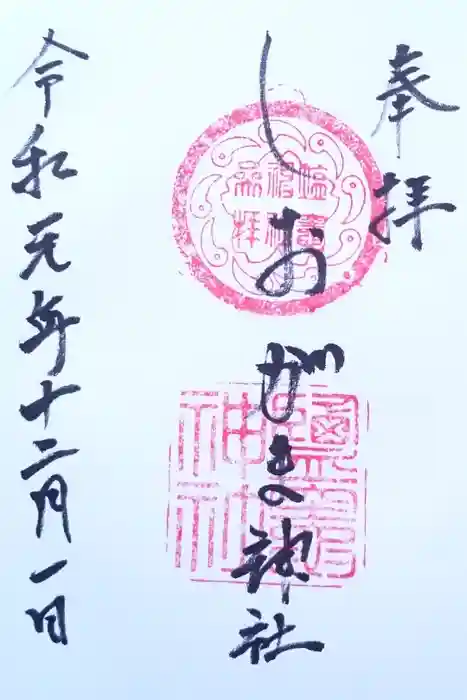 奉拝
しおがま神社
令和元年十二月一日
鹽竈神社